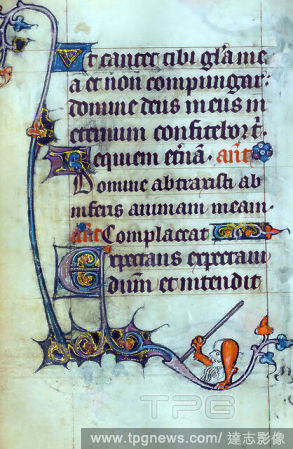 Ut cantet tibi gl̃a me
a et non compungar:
domine deus meus in
eternum confitebor t̾.
Requiem et̃nã. añt
Domine abtraxisti ab
inferis animam meam.
añt Complaceat
Expectans expectaui
dñum et intendit
TPG
www.tpgnews.com / 達志影像